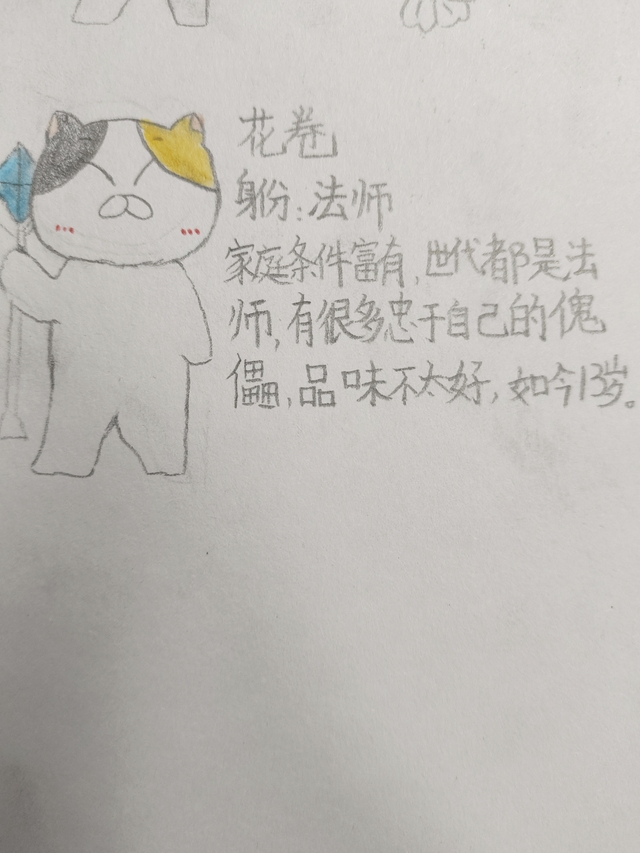 花卷
身份:法师
家庭条件富有,世代都是法
师,有很多忠于自己的傀
儡,品味不太好,如今13岁。